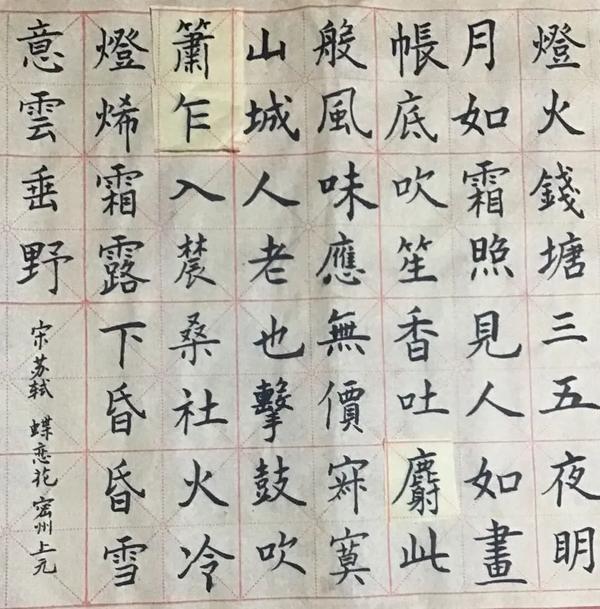 燈火錢塘三五夜明
月如霜照見人如畫
帳底吹笙香吐麝此
般風味應無價寂寞
山城人老也擊鼓吹
簫乍入辳桑社火冷
燈烯霜露下昏昏雪
意雲垂野
宋苏轼 蝶恋花 密州上元